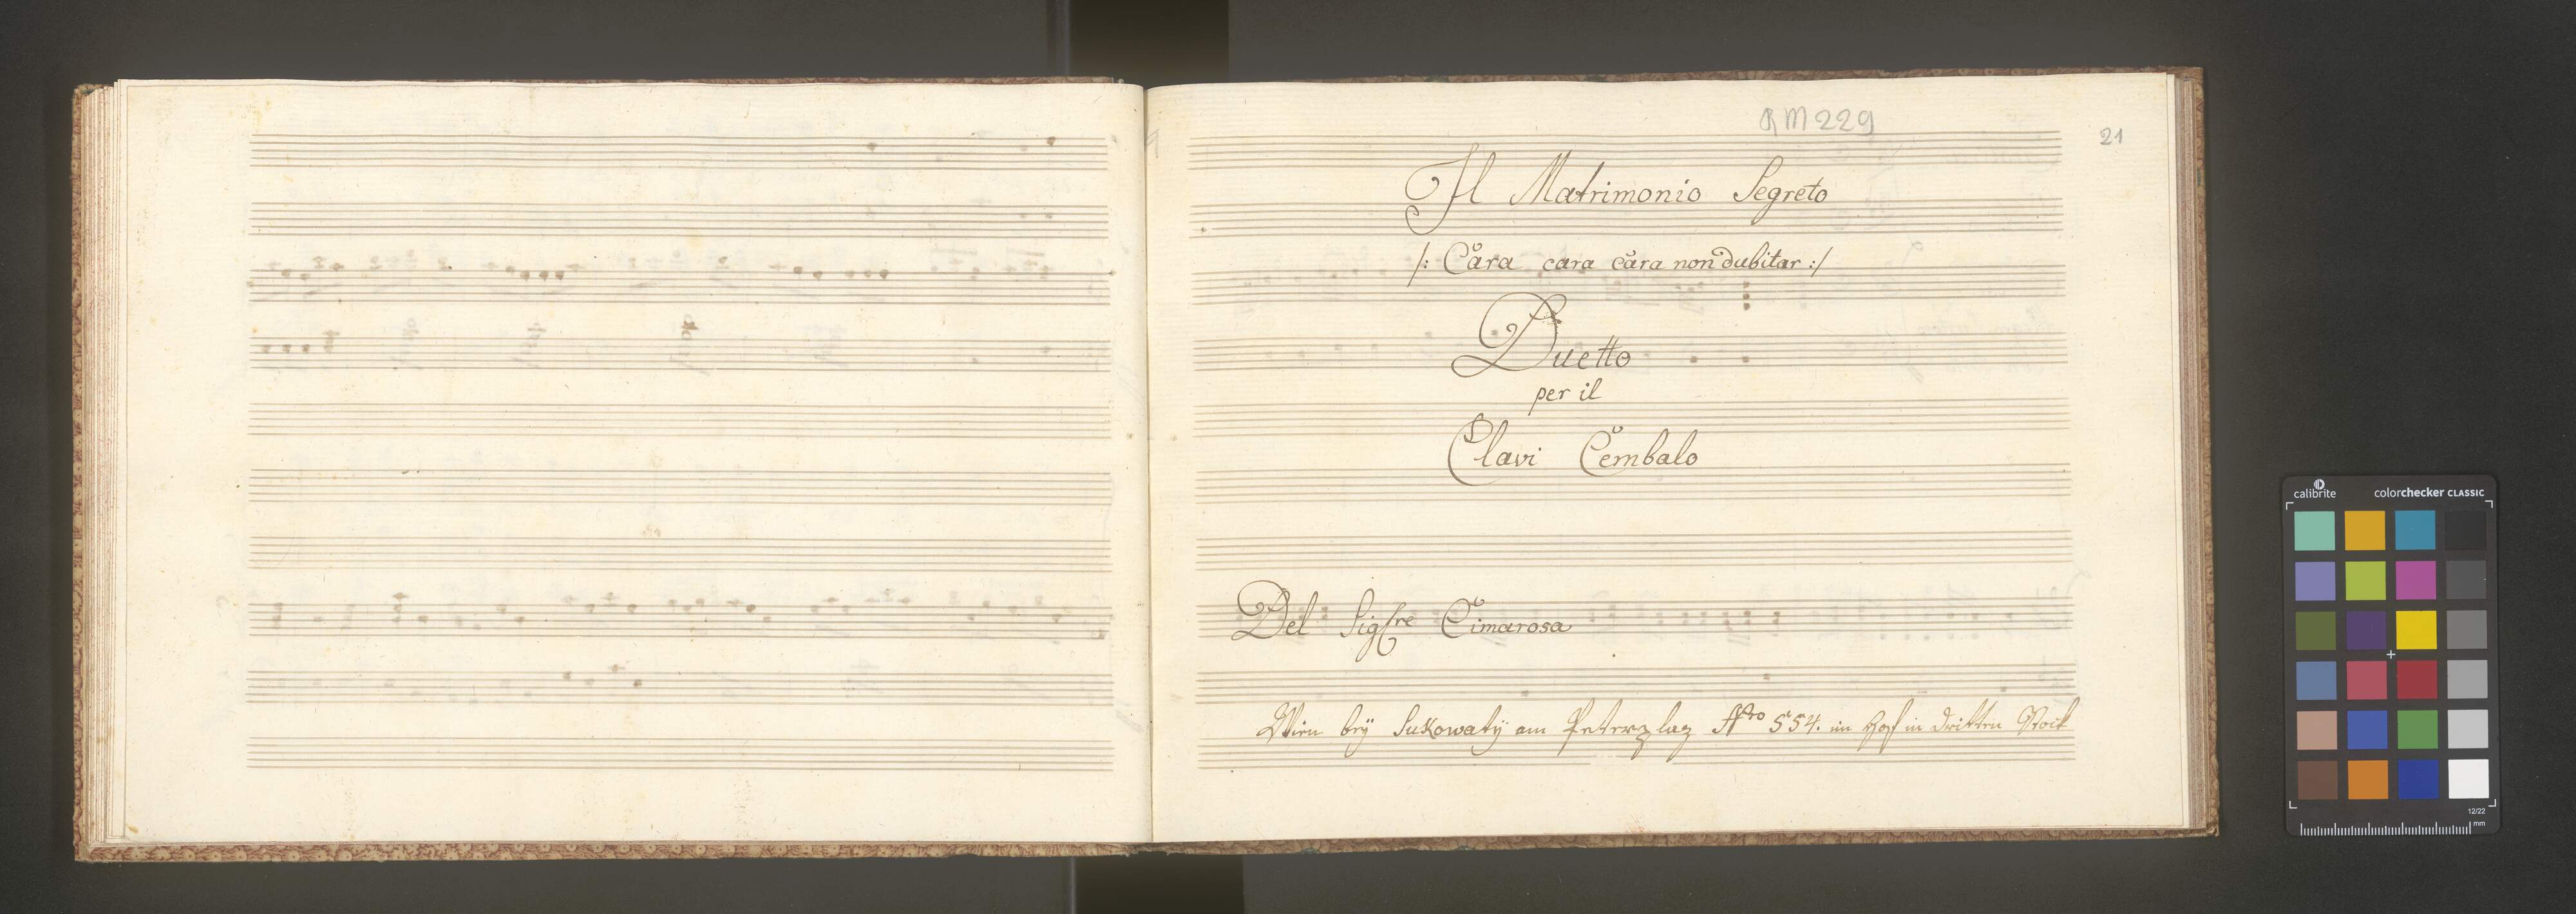 RM 229
21
Il Matrimonio Segreto
/: Cara cara cara non dubitar :/
Duetto
per il
Clavi Cembalo
Del Sigre Cimarosa
Wien beÿ Sukowatÿ am Petersplaz Nro 554. im Hof in dritten Stock
calibrite
colorchecker CLASSIC
12/22
mm